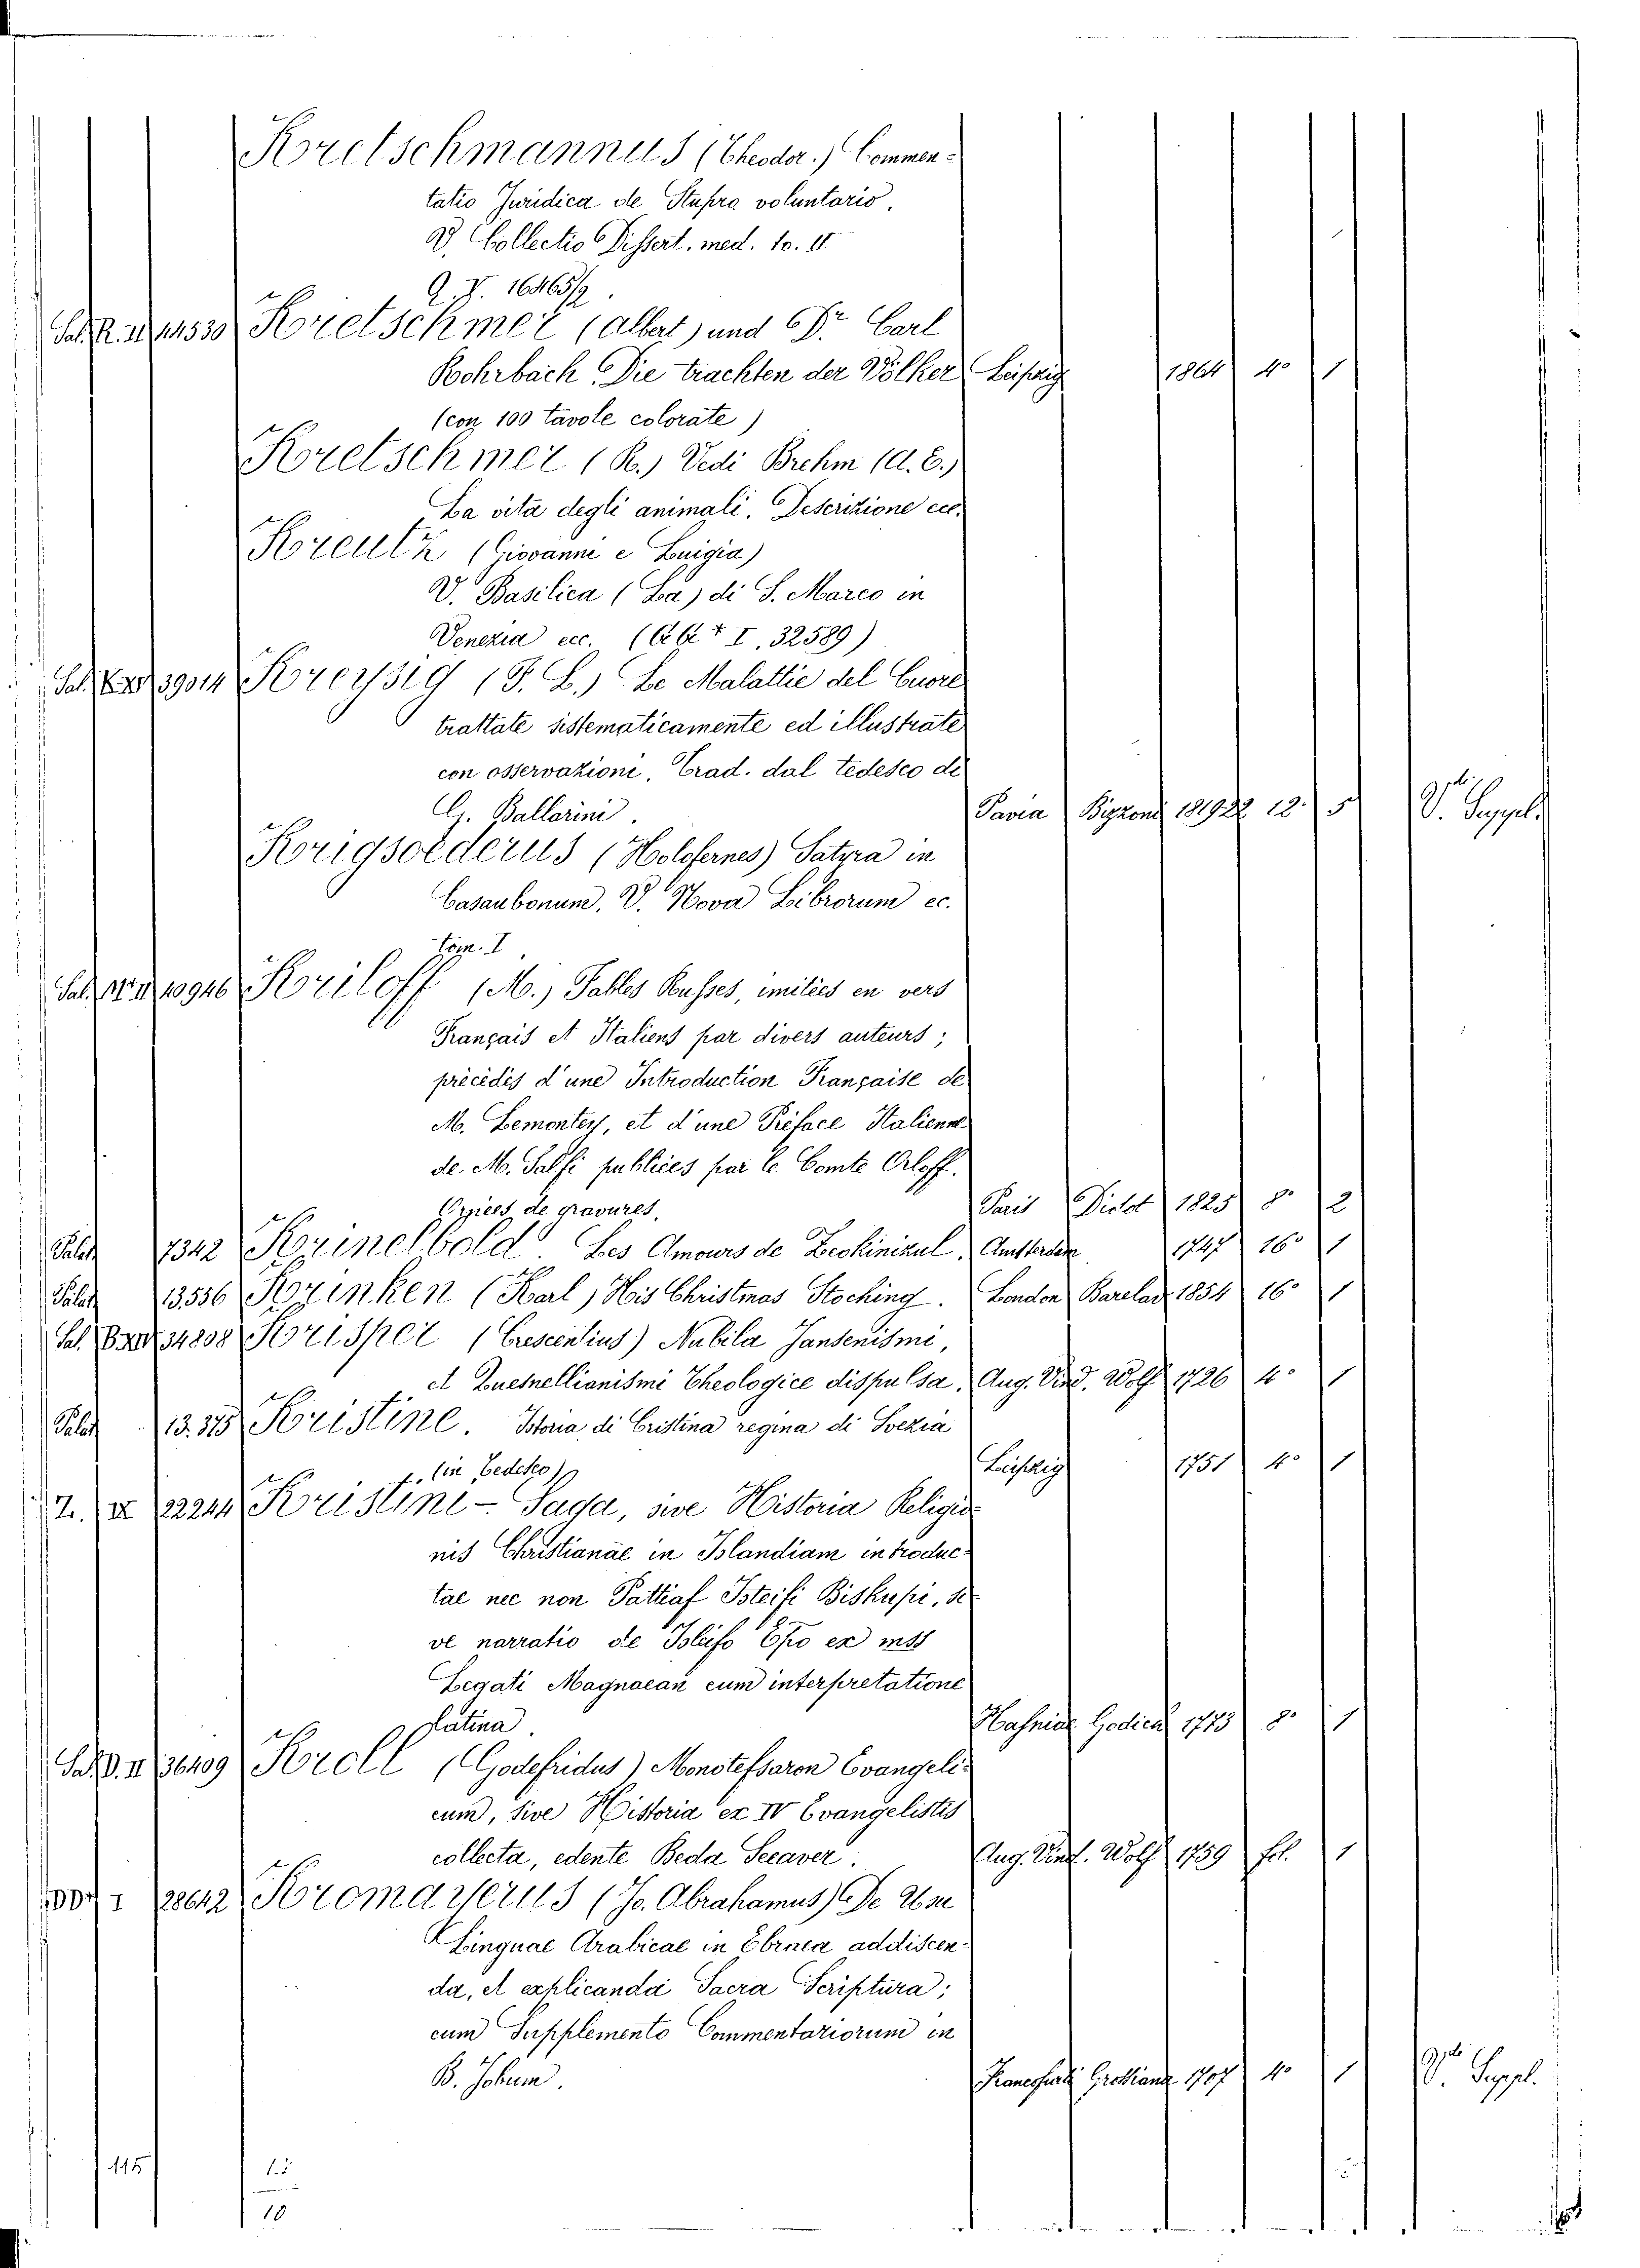 Kretschmannus (Theodor.) Commen=
tatio Juridica de Stupro voluntario.
V. Collectio Dissert. med. to. 11
Q. V. 16465/2.
Sal. R. II 14530 Kretschmer (Albert) und Dr. Carl
Rohrbach Die trachten der Völker Leipzig 1864 4o 1
(con 100 tavole colorate)
Kretschmer (R.) Vedi Brehm (A. E.)
La vita degli animali. Descrizione ecc.
Kreutz (Giovanni e Luigia)
V. Basilica (La) di S. Marco in
Venezia ecc. ( I. 32589)
Sal. 39014 Kreysig (F. L.) Le Malattie del Cuore
trattate sistematicamente ed illustrate
con osservazioni. Trad. dal tedesco di
G. Ballarini. Pavia Bizzoni 1819 22 12o 5 Vdi Suppl.
Krigsoederus (Holofernes) Satyra in
Casaubonum. V. Nova Librorum ec.
tom. I.
Sal. 10946 Kriloff (M.) Fables Russes, imitiés en vers
Français et Italiens par divers auteurs;
précédés d'une Introduction Française de
M. Lemontey, et d'une Préface Italienne
de M. Salfi publiées par le Comte Orloff.
Ornées de gravures. Paris Didot 1825 8o 2
Palat 7342 Krinelbold. Les Amours de Zeokinizul. Amsterdam 1747 16o 1
Palat 13.556 Krinken (Karl) His Christmas Stoching. London 1854 16o 1
Sal. 34808 Krisper (Crescentius) Nubila Jansenismi,
et Quesnellianismi Theologice dispulsa. Aug. Vind. Wolf 1726 4o 1
Palat 13.375 Kristine. Istoria di Cristina regina di Svezia
(in Tedesco) Leipzig 1751 4o 1
Z. II 22244 Kristini-Saga, sive Historia Religio
nis Christianae in Islandiam introduc=
tae nec non Pattiaf Isteifi Biskupi, si
ve narratio de Isleifo Epo ex mss
Legati Magnaean cum interpretatione
latina. Hafniae Godich 1773 8o 1
Sal. D. II 36409 Kroll (Godefridus) Monotessaron Evangeli=
cum, sive Historia ex IV Evangelistis
collecta, edente Beda Seeaver. Aug. Vind. Wolf 1759 fol. 1
I 28642 Kromayerus (Jo. Abrahamus) De Usu
Linguae Arabicae in Ebraea addiscen=
da, et explicanda Sacra Scriptura;
cum Supplemento Commentariorum in
B. Jobum. Francofurti 1707 4o 1 Vdi Suppl.
115 15
10